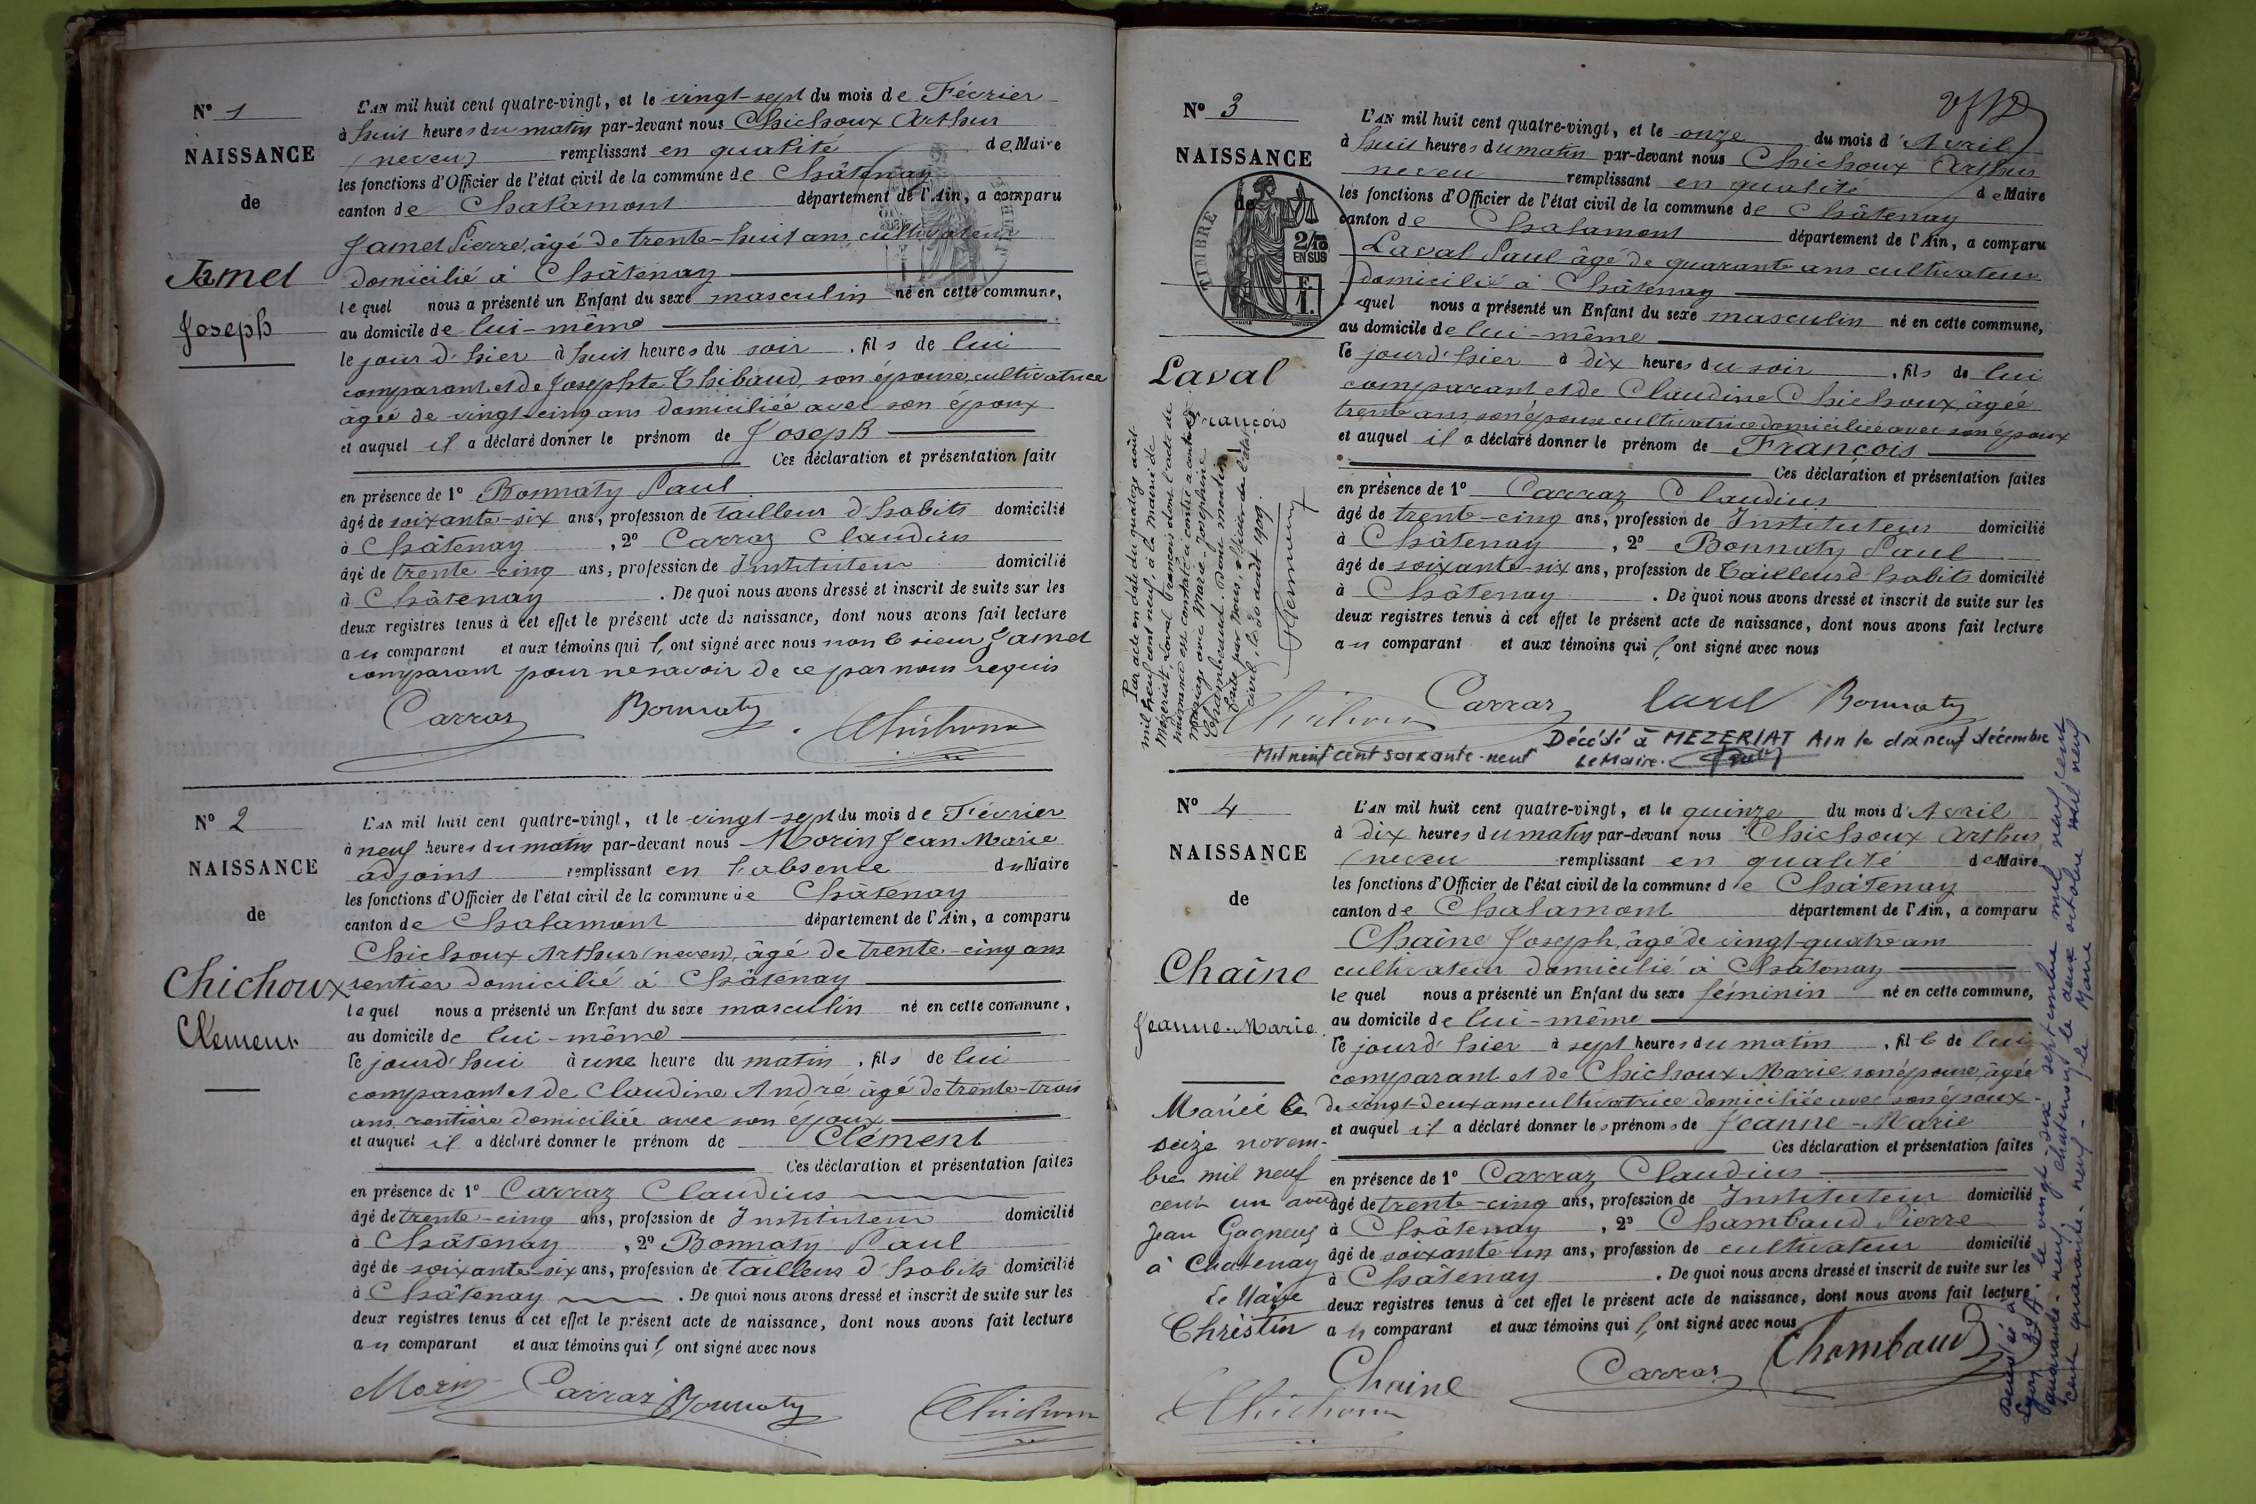 N° 1
NAISSANCE
de
Jamet
Joseph
L'AN mil huit cent quatre-vingt, et le vingt-sept du mois de Février
à huit heures du matin par-devant nous Chichoux Arthur
(neveu) remplissant en qualité de Maire
les fonctions d'Officier de l'état civil de la commune de Châtenay
canton de Chalamont département de l'Ain, a comparu
Jamet Pierre, âgé de trente-huit ans, cultivateur
domicilié à Châtenay
lequel nous a présenté un Enfant du sexe masculin né en cette commune,
au domicile de lui-même
le jour d'hier à huit heures du soir, fils de lui
comparant et de Josephte Thibaud, son épouse, cultivatrice
âgée de vingt-cinq ans domiciliée avec son époux
et auquel il a déclaré donner le prénom de Joseph
Ces déclaration et présentation faites
en présence de 1° Bonnaty Paul
âgé de soixante-six ans, profession de tailleur d'habits domicilié
à Châtenay, 2° Carraz Claudius
âgé de trente-cinq ans, profession de Instituteur domicilié
à Châtenay. De quoi nous avons dressé et inscrit de suite sur les
deux registres tenus à cet effet le présent acte de naissance, dont nous avons fait lecture
au comparant et aux témoins qui l'ont signé avec nous non le sieur Jamet
comparant pour ne savoir de ce par nous requis
Carraz Bonnaty Chichoux
N° 2
NAISSANCE
de
Chichoux
Clément
L'AN mil huit cent quatre-vingt, et le vingt-sept du mois de Février
à neuf heures du matin par-devant nous Morin Jean Marie
adjoint remplissant en l'absence du Maire
les fonctions d'Officier de l'état civil de la commune de Châtenay
canton de Chalamont département de l'Ain, a comparu
Chichoux Arthur (neveu), âgé de trente-cinq ans
rentier domicilié à Châtenay
lequel nous a présenté un Enfant du sexe masculin né en cette commune,
au domicile de lui-même
le jourd'hui à une heure du matin, fils de lui
comparant et de Claudine André âgé de trente-trois
ans, rentière domiciliée avec son époux
et auquel il a déclaré donner le prénom de Clément
Ces déclaration et présentation faites
en présence de 1° Carraz Claudius
âgé de trente-cinq ans, profession de Instituteur domicilié
à Châtenay, 2° Bonnaty Paul
âgé de soixante-six ans, profession de tailleur d'habits domicilié
à Châtenay. De quoi nous avons dressé et inscrit de suite sur les
deux registres tenus à cet effet le présent acte de naissance, dont nous avons fait lecture
au comparant et aux témoins qui l'ont signé avec nous
Morin Carraz Bonnaty Chichoux
N° 3
NAISSANCE
de
TIMBRE
2/10
EN SUS
F.
1.
Laval
François
L'AN mil huit cent quatre-vingt, et le onze du mois d'Avril
à huit heures du matin par-devant nous Chichoux Arthur
neveu remplissant en qualité de Maire
les fonctions d'Officier de l'état civil de la commune de Châtenay
canton de Chalamont département de l'Ain, a comparu
Laval Paul âgé de quarante ans cultivateur
domicilié à Châtenay
lequel nous a présenté un Enfant du sexe masculin né en cette commune,
au domicile de lui-même
le jour d'hier à dix heures du soir, fils de lui
comparant et de Claudine Chichoux, âgée
trente ans, son épouse cultivatrice domiciliée avec son époux
et auquel il a déclaré donner le prénom de François
Ces déclaration et présentation faites
en présence de 1° Carraz Claudius
âgé de trente-cinq ans, profession de Instituteur domicilié
à Châtenay, 2° Bonnaty Paul
âgé de soixante-six ans, profession de Tailleur d'habits domicilié
à Châtenay. De quoi nous avons dressé et inscrit de suite sur les
deux registres tenus à cet effet le présent acte de naissance, dont nous avons fait lecture
au comparant et aux témoins qui l'ont signé avec nous
Par acte en date du quatorze août
mil neuf cent neuf, à la mairie de
Mézériat, Laval François dont l'acte de
naissance est contre a contracté
mariage avec Marie-Josephine
Chambaud. Dont mention
faite par nous, officier de l'état
civil, le 20 août 1909.
Carraz Laval Bonnaty
Chichoux
Décédé à MEZERIAT Ain le dix neuf décembre
Mil neuf cent soixante-neuf Le Maire.
N° 4
NAISSANCE
de
Chaîne
Jeanne-Marie
L'AN mil huit cent quatre-vingt, et le quinze du mois d'Avril
à dix heures du matin par-devant nous Chichoux Arthur
(neveu remplissant en qualité de Maire
les fonctions d'Officier de l'état civil de la commune de Châtenay
canton de Chalamont département de l'Ain, a comparu
Chaîne Joseph, âgé de vingt-quatre ans
cultivateur domicilié à Châtenay
lequel nous a présenté un Enfant du sexe féminin né en cette commune,
au domicile de lui-même
le jour d'hier à sept heures du matin, fille de lui
comparant et de Chichoux Marie, son épouse, âgée
de vingt-deux ans cultivatrice domiciliée avec son époux
et auquel il a déclaré donner les prénoms de Jeanne-Marie
Ces déclaration et présentation faites
en présence de 1° Carraz Claudius
âgé de trente-cinq ans, profession de Instituteur domicilié
à Châtenay, 2° Chambaud Pierre
âgé de soixante-un ans, profession de cultivateur domicilié
à Châtenay. De quoi nous avons dressé et inscrit de suite sur les
deux registres tenus à cet effet le présent acte de naissance, dont nous avons fait lecture
au comparant et aux témoins qui l'ont signé avec nous
Mariée le
seize novem-
bre mil neuf
cent un avec
Jean Gagneux
à Chatenay
Le Maire
Christin
Chaîne Carraz Chambaud
Chichoux
Décédée à
Lyon 3e A. le vingt-six septembre mil neuf cent
quarante-neuf. Chatenay le deux octobre mil neuf
cent quarante-neuf. Le Maire